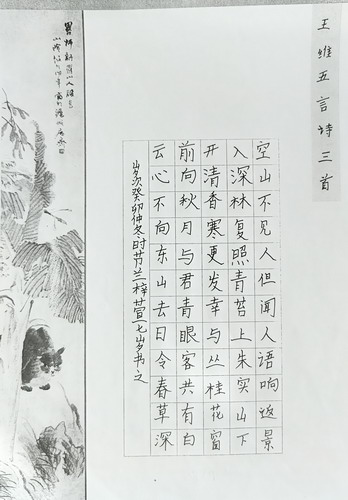 王维五言诗三首
空山不见人但闻人语响返景
入深林复照青苔上朱实山下
开清香寒更发幸与丛桂花窗
前向秋月与君青眼客共有白
云心不向东山去日令春草深
岁次癸卯仲冬时节兰梓萱七岁书之